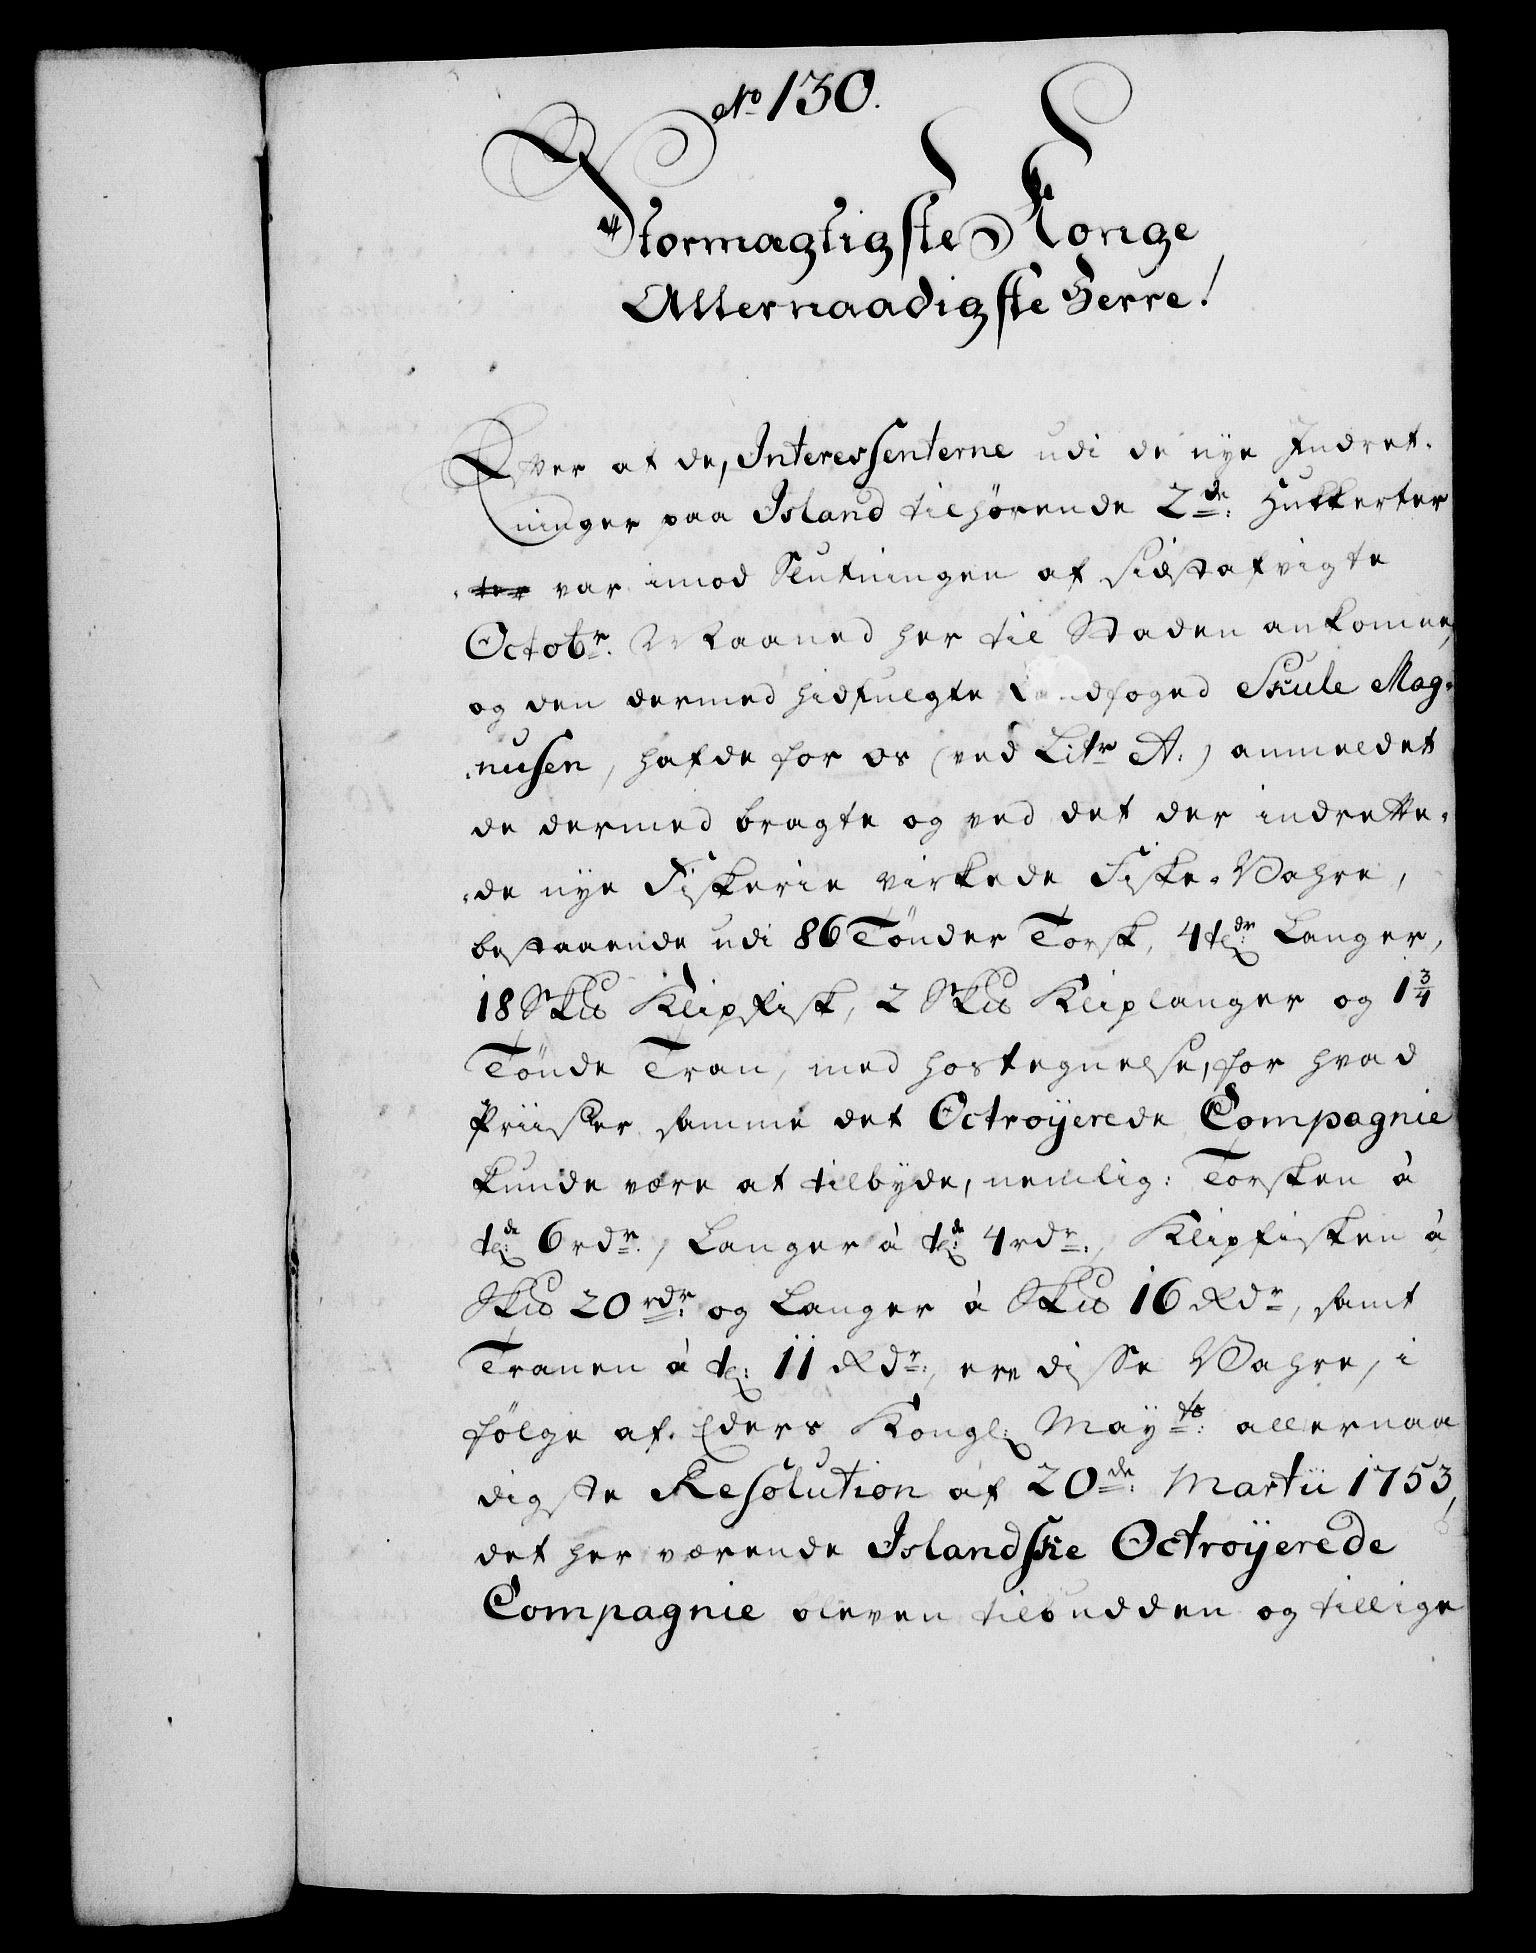 No 130.
Stormægtigste Konge
Allernaadigste Herre!
Efter at de, Interessenterne udi de nye Indret-
ninger paa Island tilhørende 2de: Hukkerter
ter var imod Slutningen af sidstafvigte
Octobr: Maaned her til Staden ankomne,
og den dermed hidfulgte Landfoged Skule Mag-
nusen, hafde for os (ved Litr A.) anmeldet
de dermed bragte og ved det der indrette-
de nye Fiskerie virkede Fiske-Vahre,
bestaaende udi 86 Tønder Torsk, 4 tdr: Langer,
18 Sk℔ Klipfisk, 2 Sk℔ Kliplanger og 1 3/4
Tønde Tran, med hostegnelse, for hvad
Priiser samme det Octroyerede Compagnie
kunde være at tilbyde, nemlig: Torsken à
tde: 6 rdr:, Langer à tde: 4 rdr:, Klipfisken à
Sk℔ 20 rdr: og Langer à Sk℔ 16 Rdr, samt
Tranen à t: 11 Rdr:, ere disse Vahre, i
følge af Eders Kongl: Mayts: allernaa
digste Resolution af 20de: Martii 1753,
det her værende Islandske Octroyerede
Compagnie bleven tilbudden og tillige